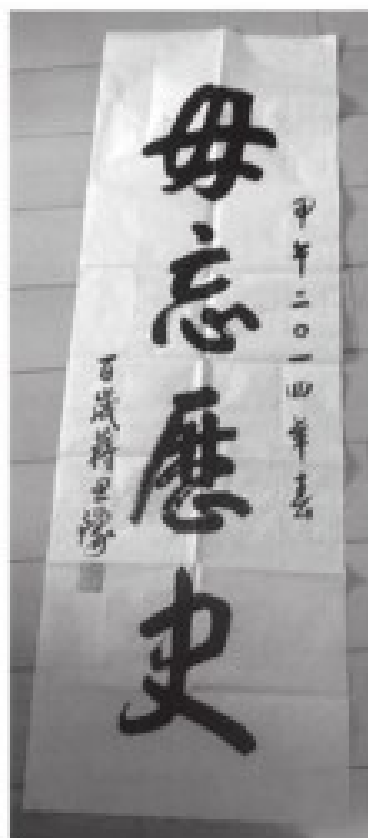 甲午二〇一四年
毋忘歷史
百歲蔣思豫